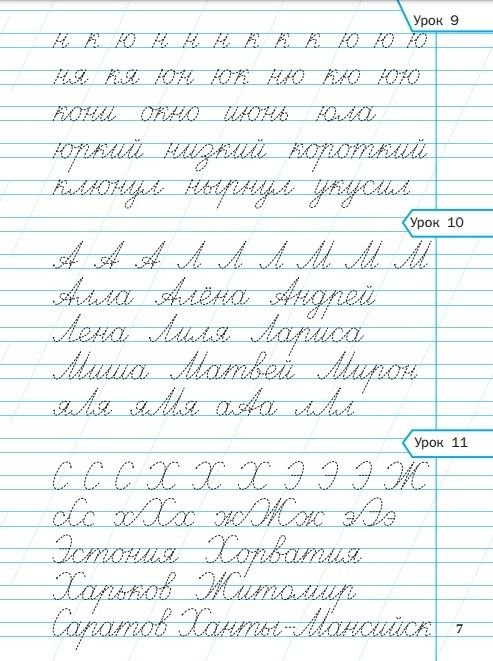 Урок 9
н к ю н н н к к к ю ю ю
ня кя юн юк ню кю юю
кони окно июнь юла
юркий низкий короткий
клюнул нырнул укусил
Урок 10
А А А Л Л Л М М М
Алла Алёна Андрей
Лена Лиля Лариса
Миша Матвей Мирон
яЛя яМя аАа лЛл
Урок 11
С С С Х Х Х Э Э Э Ж
сСс хХх жЖж эЭэ
Эстония Хорватия
Харьков Житомир
Саратов Ханты-Мансийск
7